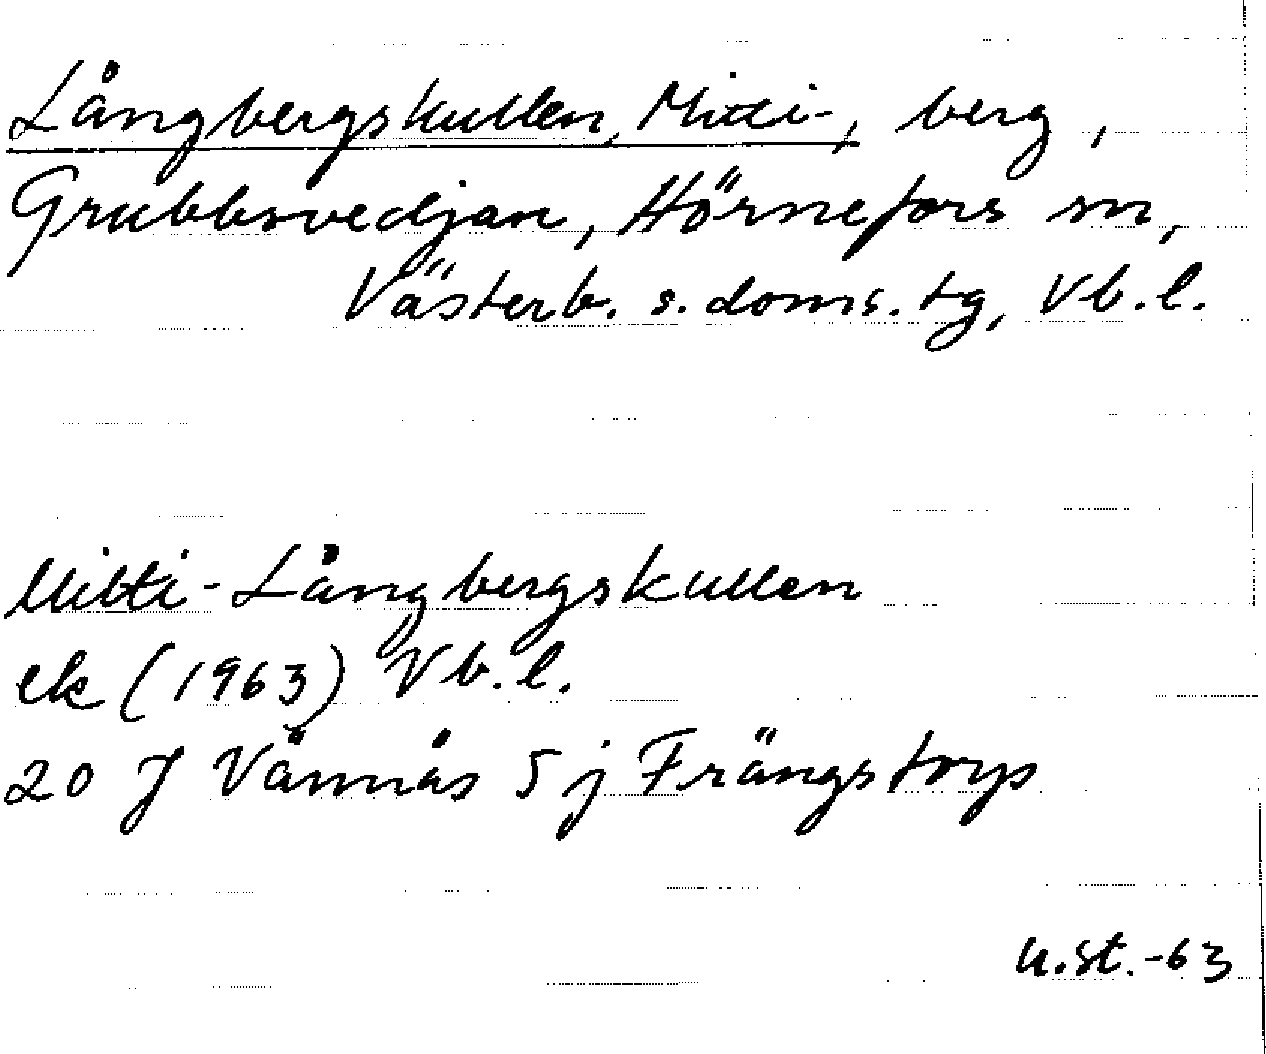 Långbergskullen, Mitti-, berg,
Grubbsvedjan, Hörnefors sn,
Västerb. s. doms. tg, Vb.l.
Mitti-Långbergskullen
ek (1963) Vb.l.
20 J Vännäs 5 j Frängstorp
U.St.-63